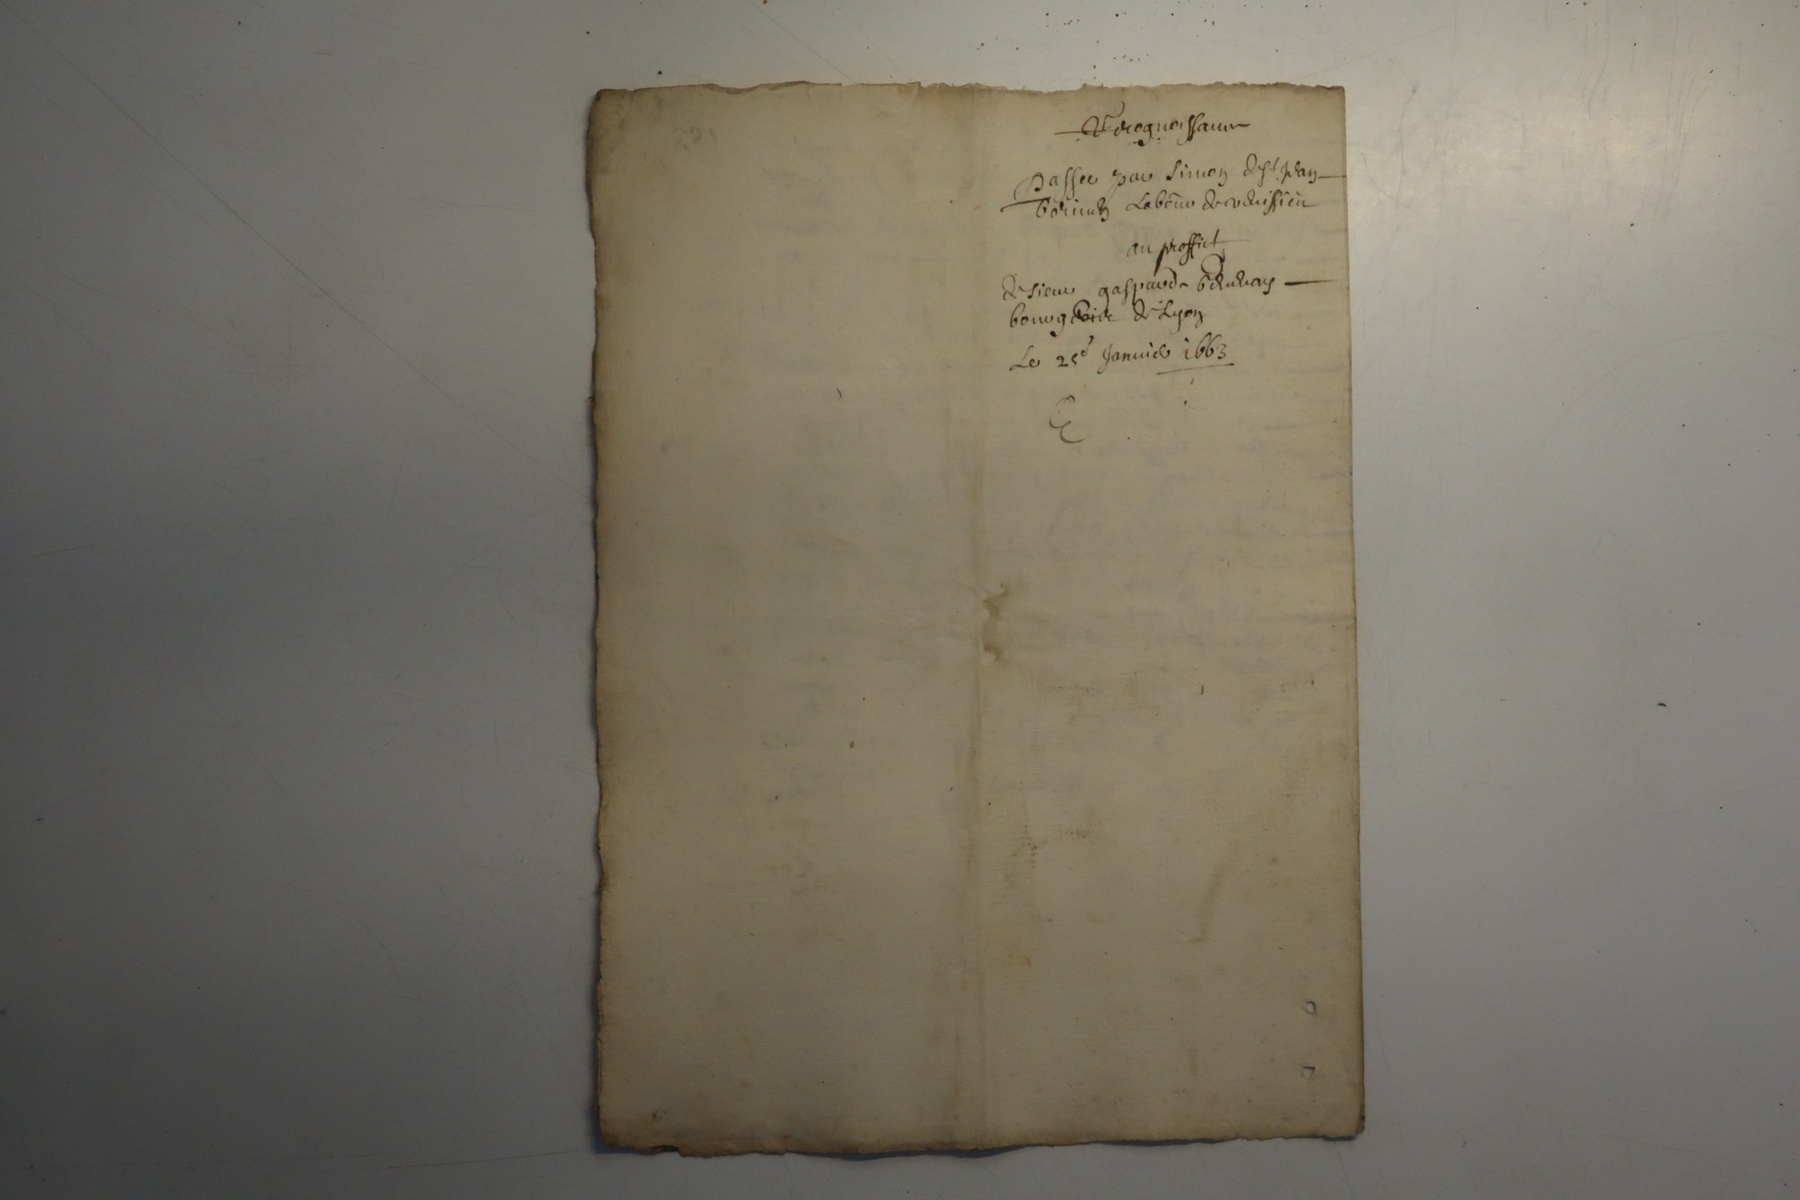 Recognoissance
Passee par Simon de St Jean
Laboureur de
au proffict
de Sieur gaspard
bourgeois de Lyon
Le 25e Janvier 1663